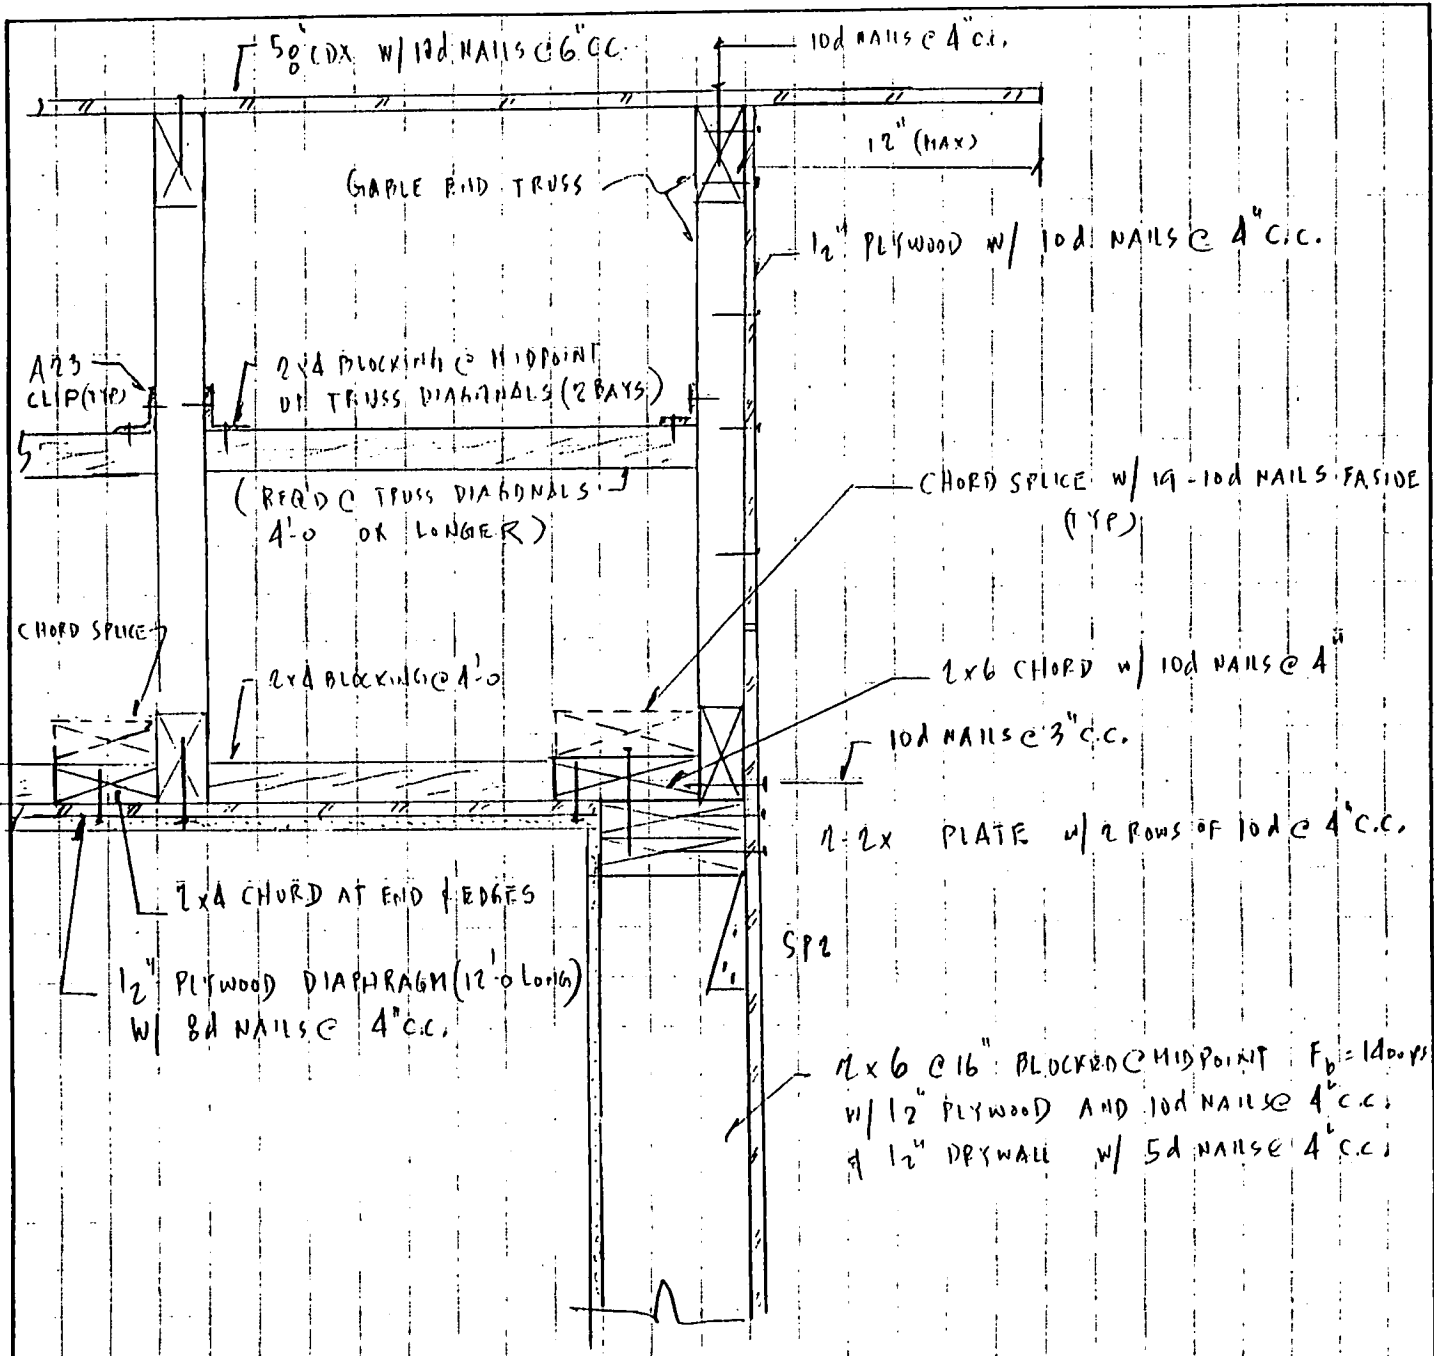 5/8" CDX W/ 10d NAILS @ 6" C.C.
10d NAILS @ 4" C.C.
12" (MAX)
GABLE END TRUSS
1/2" PLYWOOD W/ 10d NAILS @ 4" C.C.
A23
CLIP (TYP)
2x4 BLOCKING @ MIDPOINT
OF TRUSS DIAGONALS (2 BAYS)
(REQ'D @ TRUSS DIAGONALS
4'-0 OR LONGER)
CHORD SPLICE W/ 19-10d NAILS EA SIDE
(TYP)
CHORD SPLICE
2x4 BLOCKING @ 4'-0
2x6 CHORD W/ 10d NAILS @ 4"
10d NAILS @ 3" C.C.
2-2x PLATE W/ 2 ROWS OF 10d @ 4" C.C.
2x4 CHORD AT END & EDGES
SP2
1/2" PLYWOOD DIAPHRAGM (12'-0 LONG)
W/ 8d NAILS @ 4" C.C.
2x6 @ 16" BLOCKED @ MIDPOINT Fb = 1400 ps
W/ 1/2" PLYWOOD AND 10d NAILS @ 4" C.C.
& 1/2" DRYWALL W/ 5d NAILS @ 4" C.C.